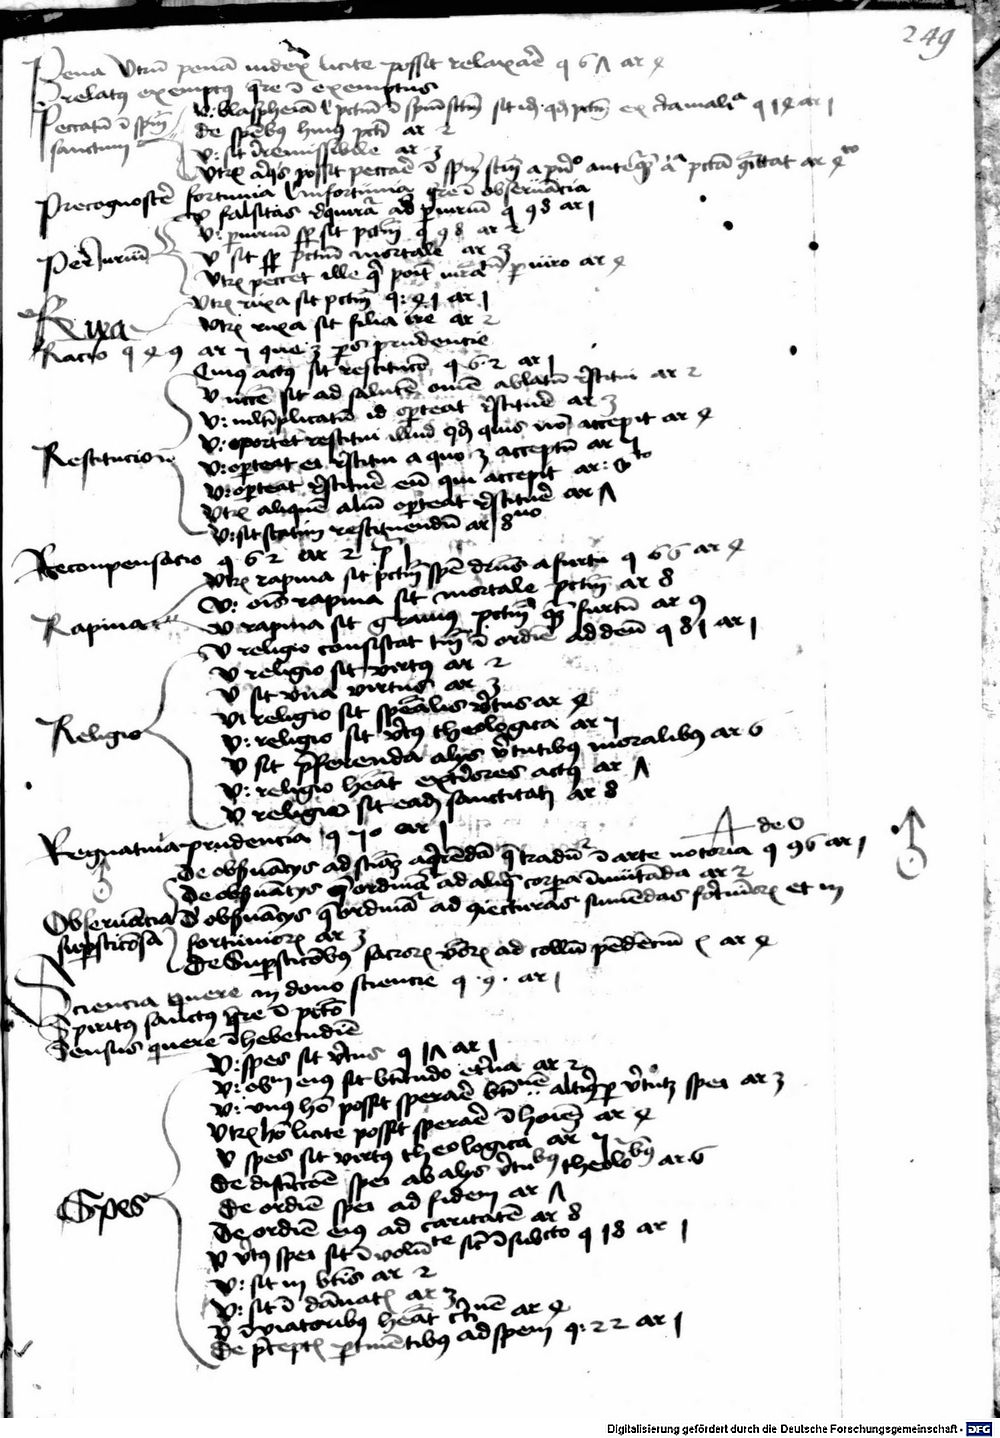 249
Pena Utrum penam iudex licite possit relaxare q 67 ar 4
Prelatus exemptus quere in exemptus
Peccatum in spiritum sanctum
V: blasphemia vel peccatum in spiritum sanctum sit idem quod peccatum ex certa malicia q 14 ar 1
de speciebus huius peccati ar 2
V: sit irremissibile ar 3
Utrum aliquis possit peccare in spiritum sanctum a principio antequam alia peccata committat ar 4to
Precognoscere fortunia vel infortunia quere in observancia
Periurium
V falsitas requiratur ad periurium q 98 ar 1
V: periurium semper sit peccatum q 98 ar 2
V sit semper peccatum mortale ar 3
Utrum peccet ille qui iniuro ar 4
Rixa
Utrum rixa sit peccatum q: 41 ar 1
Utrum rixa sit filia ire ar 2
Racio q 49 ar 5 que est pars prudencie
Restitucio
Cuius actus sit restitucio q 62 ar 1
V necesse sit ad salutem omne ablatum restitui ar 2
V: multiplicatum id oporteat restituere ar 3
V: oportet restitui illud quod quis non accepit ar 4
V: oporteat ei restitui a quo est acceptum ar 5
V: oporteat restituere eum qui accepit ar: 6to
Utrum aliquem alium oporteat restituere ar 7
V: sit statim restituendum ar 8uo
Recompensacio q 62 ar 2
Rapina
Utrum rapina sit peccatum specie diversum a furto q 66 ar 4
V: omnis rapina sit mortale peccatum ar 8
V rapina sit gravius peccatum quam furtum ar 9
Religio
V religio consistat tantum in ordine ad deum q 81 ar 1
V religio sit virtus ar 2
V sit una virtus ar 3
V: religio sit specialis virtus ar 4
V: religio sit virtus theologica ar 5
V sit preferenda aliis virtutibus moralibus ar 6
V: religio habeat exteriores actus ar 7
V religio sit eadem sanctitati ar 8
Regnativa prudencia q 50 ar 1
A de O
Observancia supersticiosa
De observanciis ad scienciam acquirendam que traduntur in arte notoria q 96 ar 1
De observanciis que ordinantur ad aliqua corpora immutanda ar 2
De observanciis que ordinantur ad coniecturas sumendas fortuniorum et in
fortuniorum ar 3
De Supersticionibus sacrorum verborum ad collum pendencium ar 4
Sciencia quere in dono sciencie q. 9. ar 1
Spiritus sanctus quere in peccato
Sensus quere in hebetudine
Spes
V: spes sit virtus q 17 ar 1
V: obiectum eius sit beatitudo eterna ar 2
V: unus homo possit sperare beatitudinem alterius per virtutem spei ar 3
Utrum homo licite possit sperare in homine ar 4
V spes sit virtus theologica ar 5
De distinccione spei ab aliis virtutibus theologicis ar 6
De ordine spei ad fidem ar 7
De ordine eius ad caritatem ar 8
V virtus spei sit in voluntate sicut in subiecto q 18 ar 1
V: sit in beatis ar 2
V: sit in damnatis ar 3
V in viatoribus habeat certitudinem ar 4
De preceptis pertinentibus ad spem q: 22 ar 1
Digitalisierung gefördert durch die Deutsche Forschungsgemeinschaft - DFG